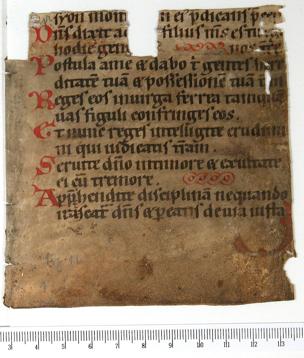 syon mont ei p̄dicans prec
Dn̄s dixit ad filius m̄s es tu
hodie gen
Postula a me & dabo t̄ gentes here
ditatē tuā & possessionē tuā
Reges eos in virga ferrea tamquā
vas figuli confringes eos.
Et nunc reges intelligite erudimi
ni qui iudicatis t̄ram.
Servite dn̄o in timore & exultate
ei cū tremore.
App̄hendite disciplinā nequando
irascat̄ dn̄s & p̄eatis de via iusta
3 4 5 6 7 8 9 10 11 12 13